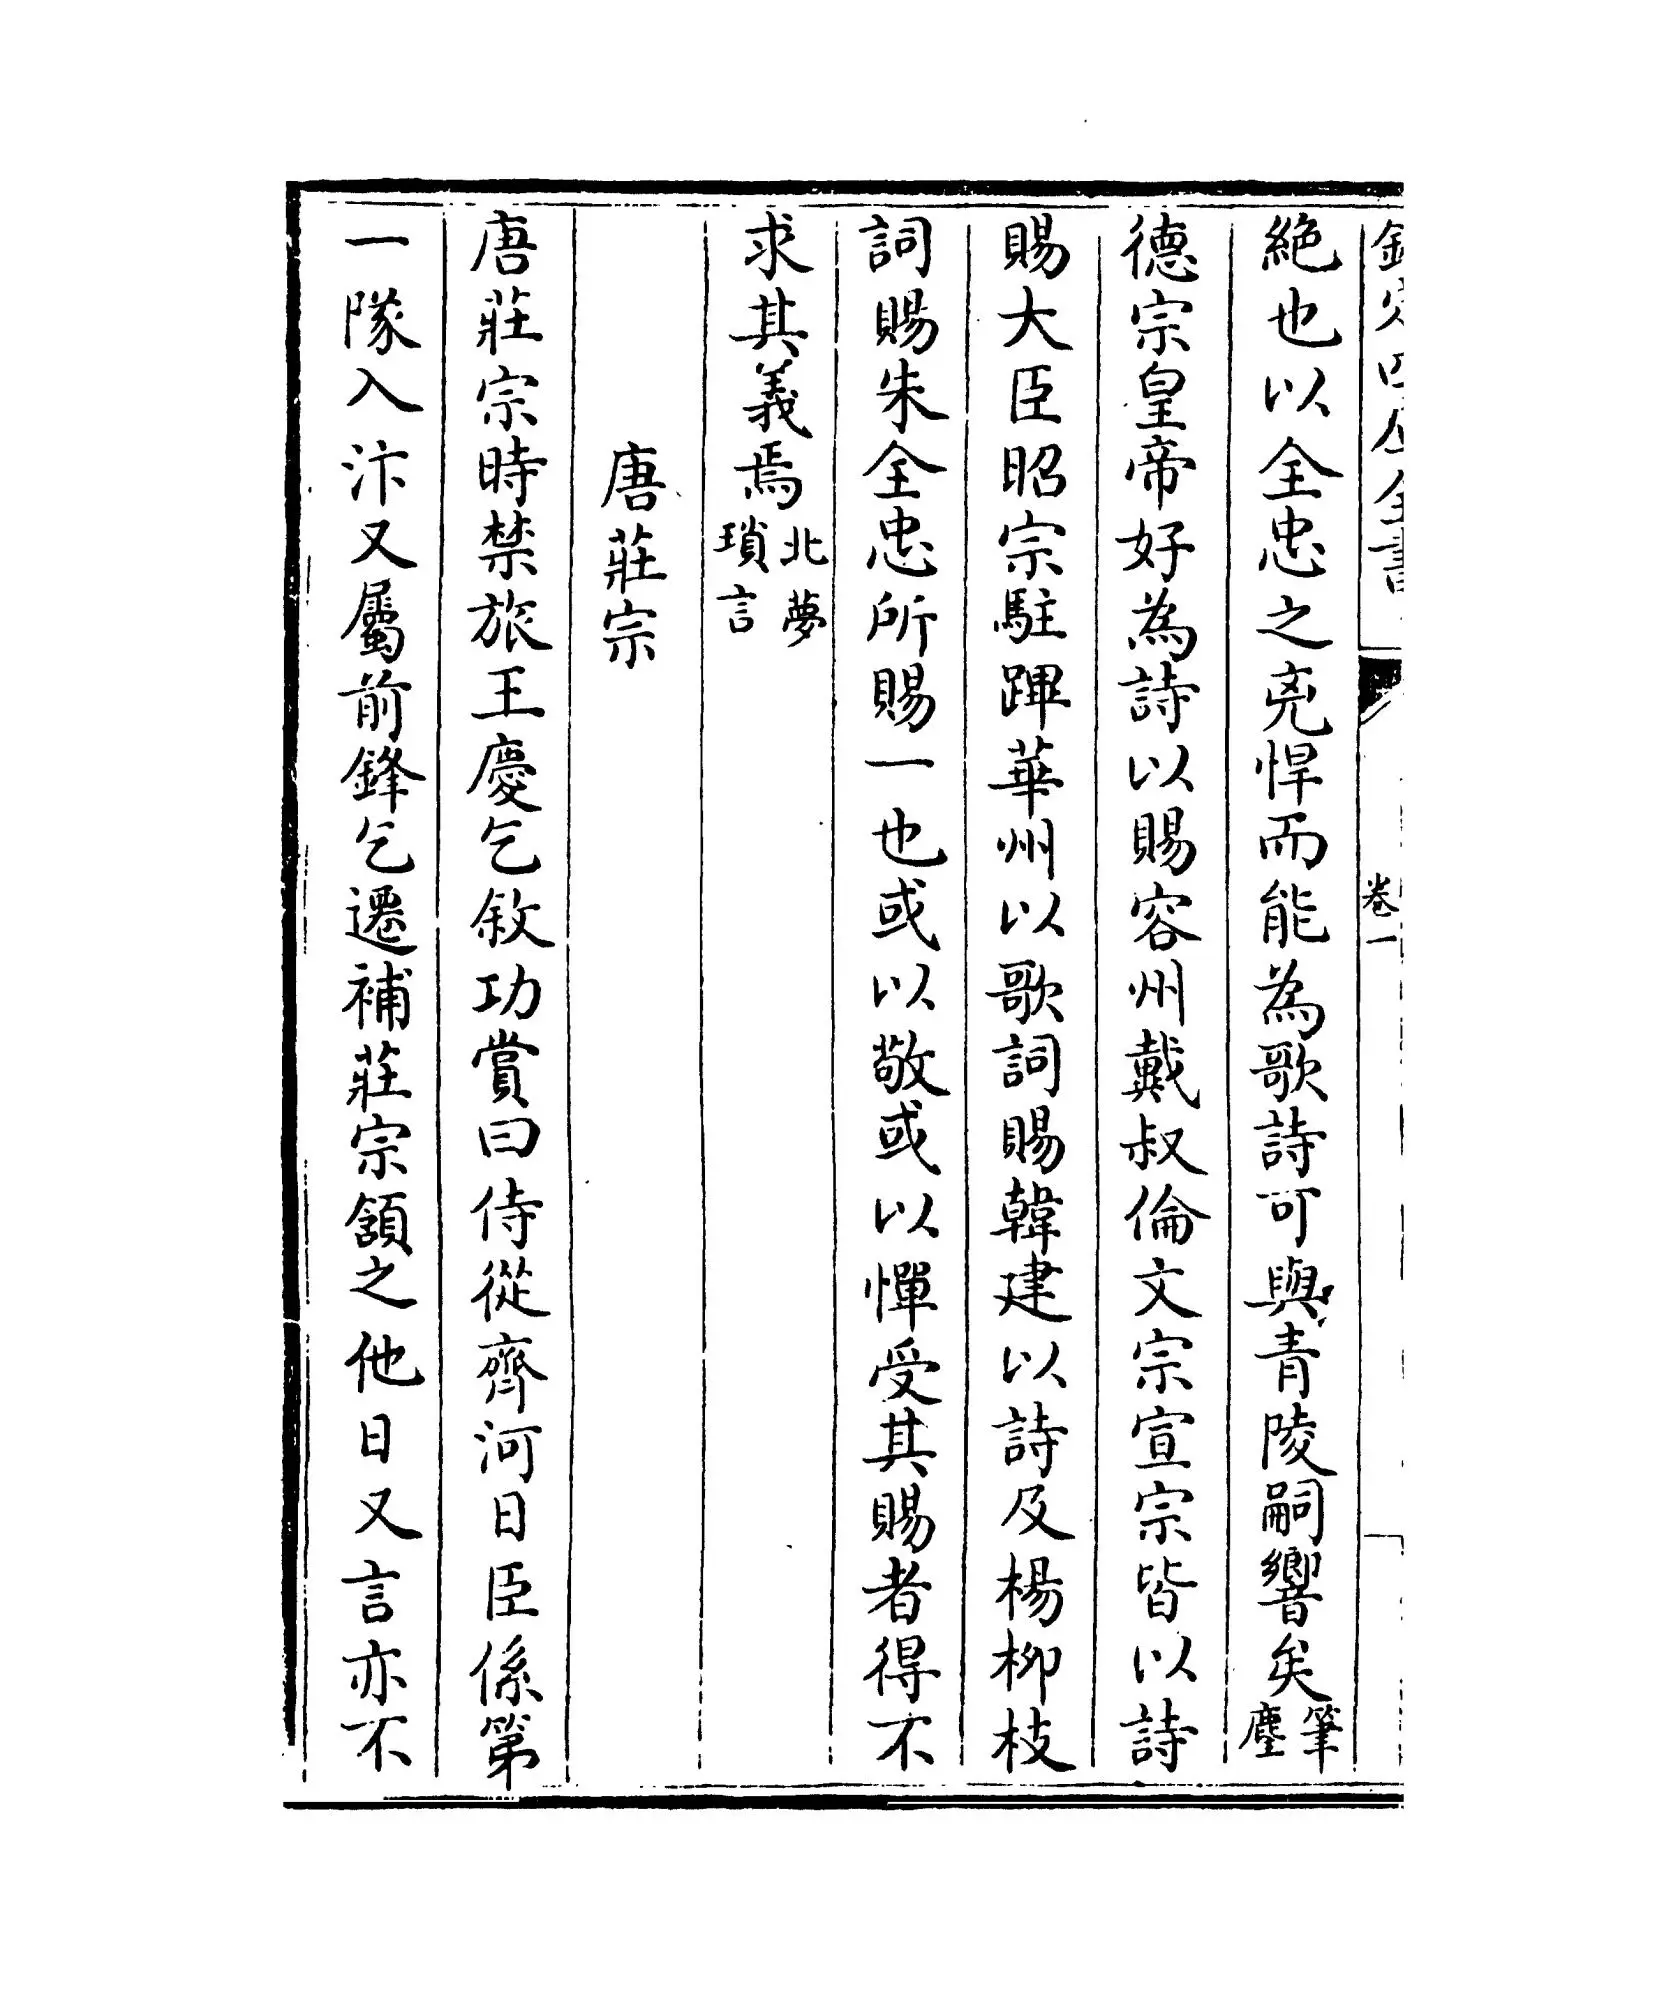 欽定四庫全書 卷一
絶也以全忠之兇悍而能為歌詩可與青陵嗣響矣筆塵
德宗皇帝好為詩以賜容州戴叔倫文宗宣宗皆以詩
賜大臣昭宗駐蹕華州以歌詞賜韓建以詩及楊柳枝
詞賜朱全忠所賜一也或以敬或以憚受其賜者得不
求其義焉北夢瑣言
唐莊宗
唐莊宗時禁旅王慶乞敘功賞曰侍從齊河日臣係第
一隊入汴又屬前鋒乞遷補莊宗頷之他日又言亦不